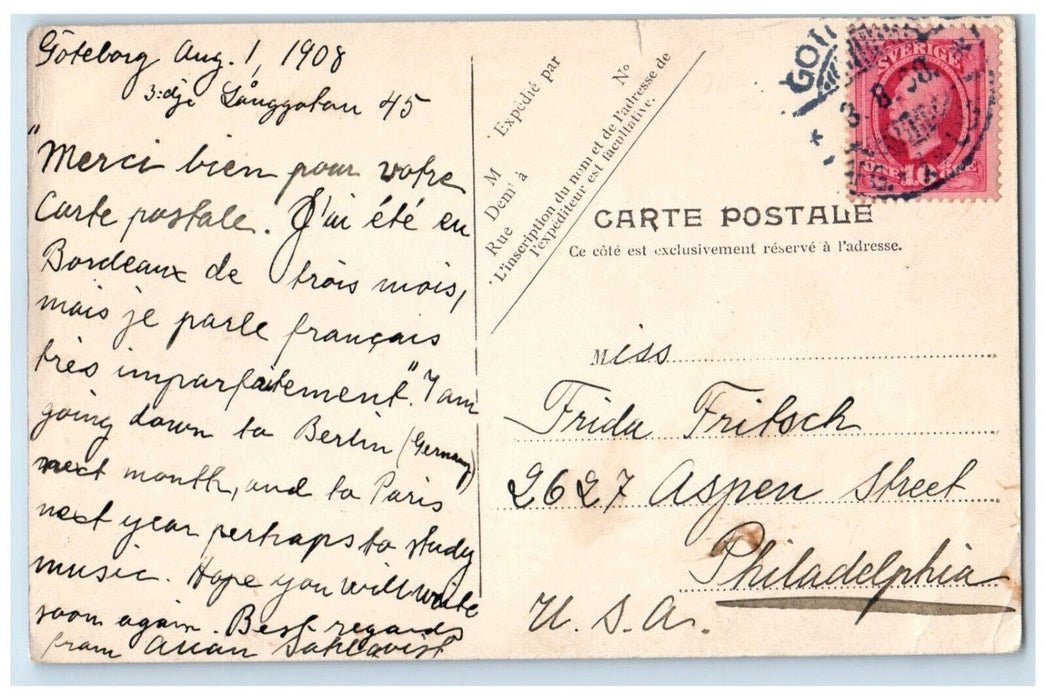 Göteborg Aug. 1, 1908
3:dje Långgatan 45
"Merci bien pour votre
Carte postale. J'ai été en
Bordeaux de trois mois,
mais je parle français
très imparfaitement". I am
going down to Berlin (Germany)
next month, and to Paris
next year perhaps to study
music. Hope you will write
soon again. Best regards
from Allan Sahlqvist
Expédié par
M
Demt à
Rue
No
L'inscription du nom et de l'adresse de
l'expéditeur est facultative.
SVERIGE
10
3 8 08
CARTE POSTALE
Ce côté est exclusivement réservé à l'adresse.
Miss
Frida Fritsch
2627 Aspen Street
Philadelphia
U. S. A.